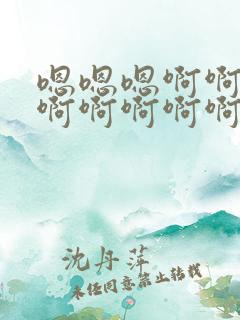 嗯嗯嗯啊啊
啊啊啊啊啊
沈丹萍
未经同意禁止转载